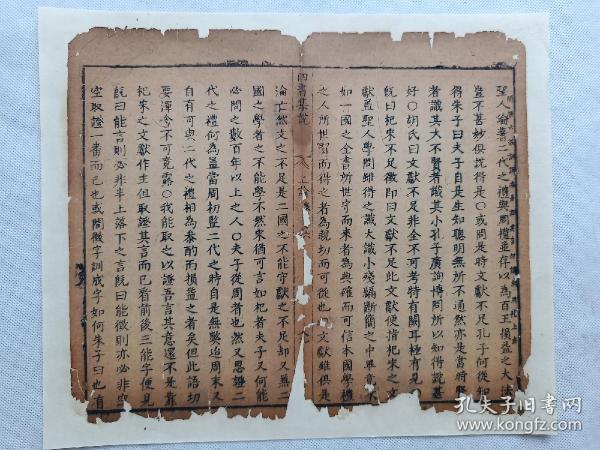 聖人論書三代之禮與周禮並存以為百王損益之大法
豈不甚妙俱說得是〇或問是時文獻不足孔子何從知
得朱子曰夫子自是生知聰明無所不通然亦是當時
者識其大不賢者識其小孔子廣詢博問所以知得說甚
好〇胡氏曰文獻不足非全不可考特有闕耳種有見
既曰杞宋不足徵即曰文獻不足此文獻便指杞宋之
獻蓋聖人學問雖得之識大識小殘編斷簡之中畢竟不
如一國之全書所世守而來者為典確而可信本國學禮
之人所世習而得之者為親切而可從也
文獻雖俱是
四書集說
上論
淪亡然文之不足是二國之不能守獻之不足却又兼二
國之學者之不能學不然宋猶可言如杞者夫子又何能
必問之數百年以上之人〇夫子從周者也然又思證二
代之禮何為蓋當周初監二代之時自是無獘迨周末又
自有可與二代之禮相為參酌而損益之者矣但此語切
要渾含不可竟露〇我能取之以證吾言其意還不是靠
杞宋之文獻作主但取證其言而已看前後三能字便見
既曰能言則必非半上落下之言既曰能徵則亦必非
空取證一番而已也或問徵字訓成字如何朱子曰也有
孔夫子旧书网
kongfz.com